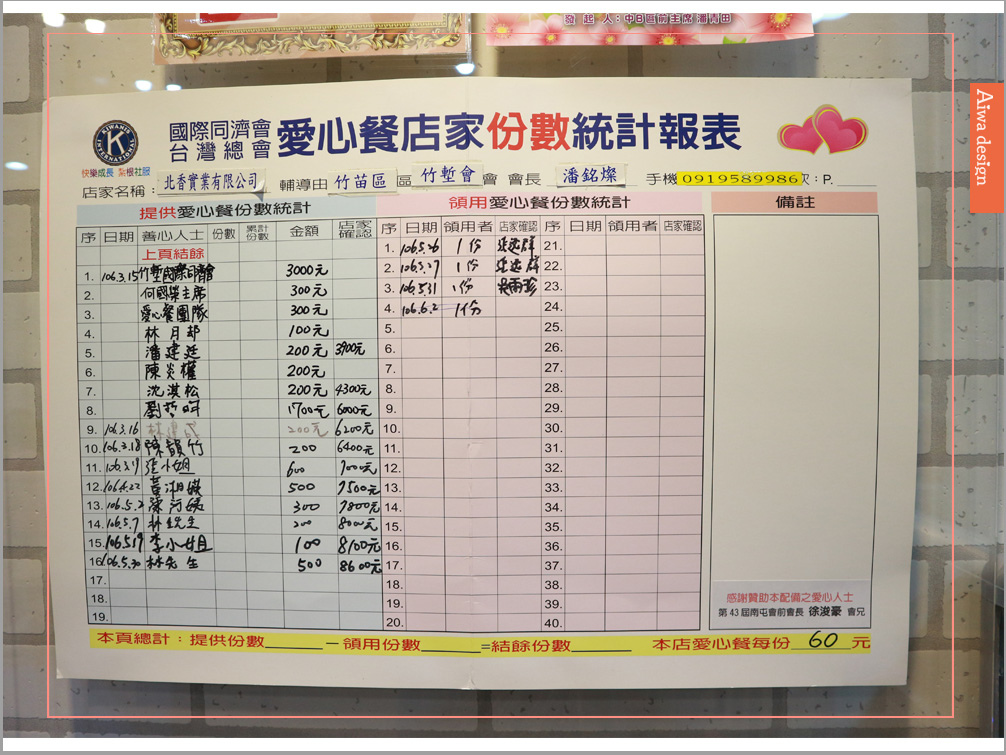 發起人：中B區前主席 潘貴田
Aiwa design
KIWANIS
INTERNATIONAL
快樂成長 紮根社服
國際同濟會
台灣總會
愛心餐店家份數統計報表
店家名稱：北香實業有限公司 輔導由 竹苗區 區 竹塹會 會 會長 潘銘燦 手機 0919589986 ：P.
提供愛心餐份數統計 領用愛心餐份數統計 備註
序 日期 善心人士 份數 累計份數 金額 店家確認 序 日期 領用者 店家確認 序 日期 領用者 店家確認
上頁結餘
1. 106.3.15 竹塹國際同濟會 3000元
2. 何國榮主席 300元
3. 愛心餐團隊 300元
4. 林月 100元
5. 潘建廷 200元 3900元
6. 陳炎權 200元
7. 沈淇松 200元 4300元
8. 劉哲 1700元 6000元
9. 106.3.16 林 200元 6200元
10. 106.3.18 陳韻竹 200 6400元
11. 106.3.19 張小姐 600 7000元
12. 106.4.22 黃湘 500 7500元
13. 106.5.2 陳 300 7800元
14. 106.5.7 林先生 200 8000元
15. 106.5.19 李小姐 100 8100元
16. 106.5.30 林先生 500 8600元
17.
18.
19.
1. 106.5.26 1份
2. 1份
3. 106.5.31 1份
4. 106.6.2 1份
5.
6.
7.
8.
9.
10.
11.
12.
13.
14.
15.
16.
17.
18.
19.
20.
21.
22.
23.
24.
25.
26.
27.
28.
29.
30.
31.
32.
33.
34.
35.
36.
37.
38.
39.
40.
感謝贊助本配備之愛心人士
第43屆南屯會前會長 徐浚豪 會兄
本頁總計：提供份數______－領用份數______=結餘份數______ 本店愛心餐每份 60 元